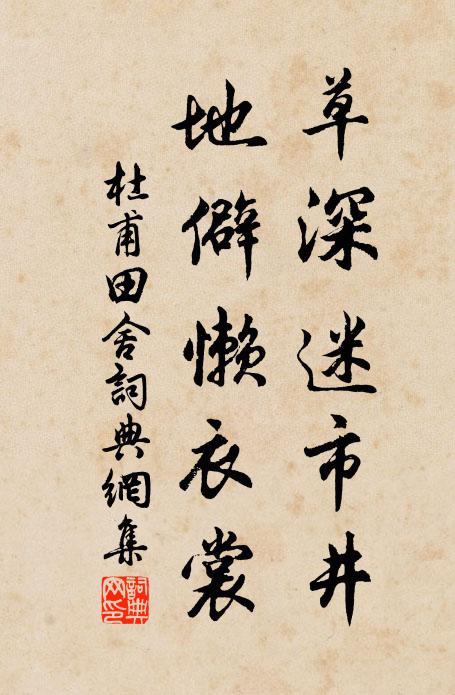 草深迷市井
地僻懶衣裳
杜甫田舍詞典網集
詞典网印